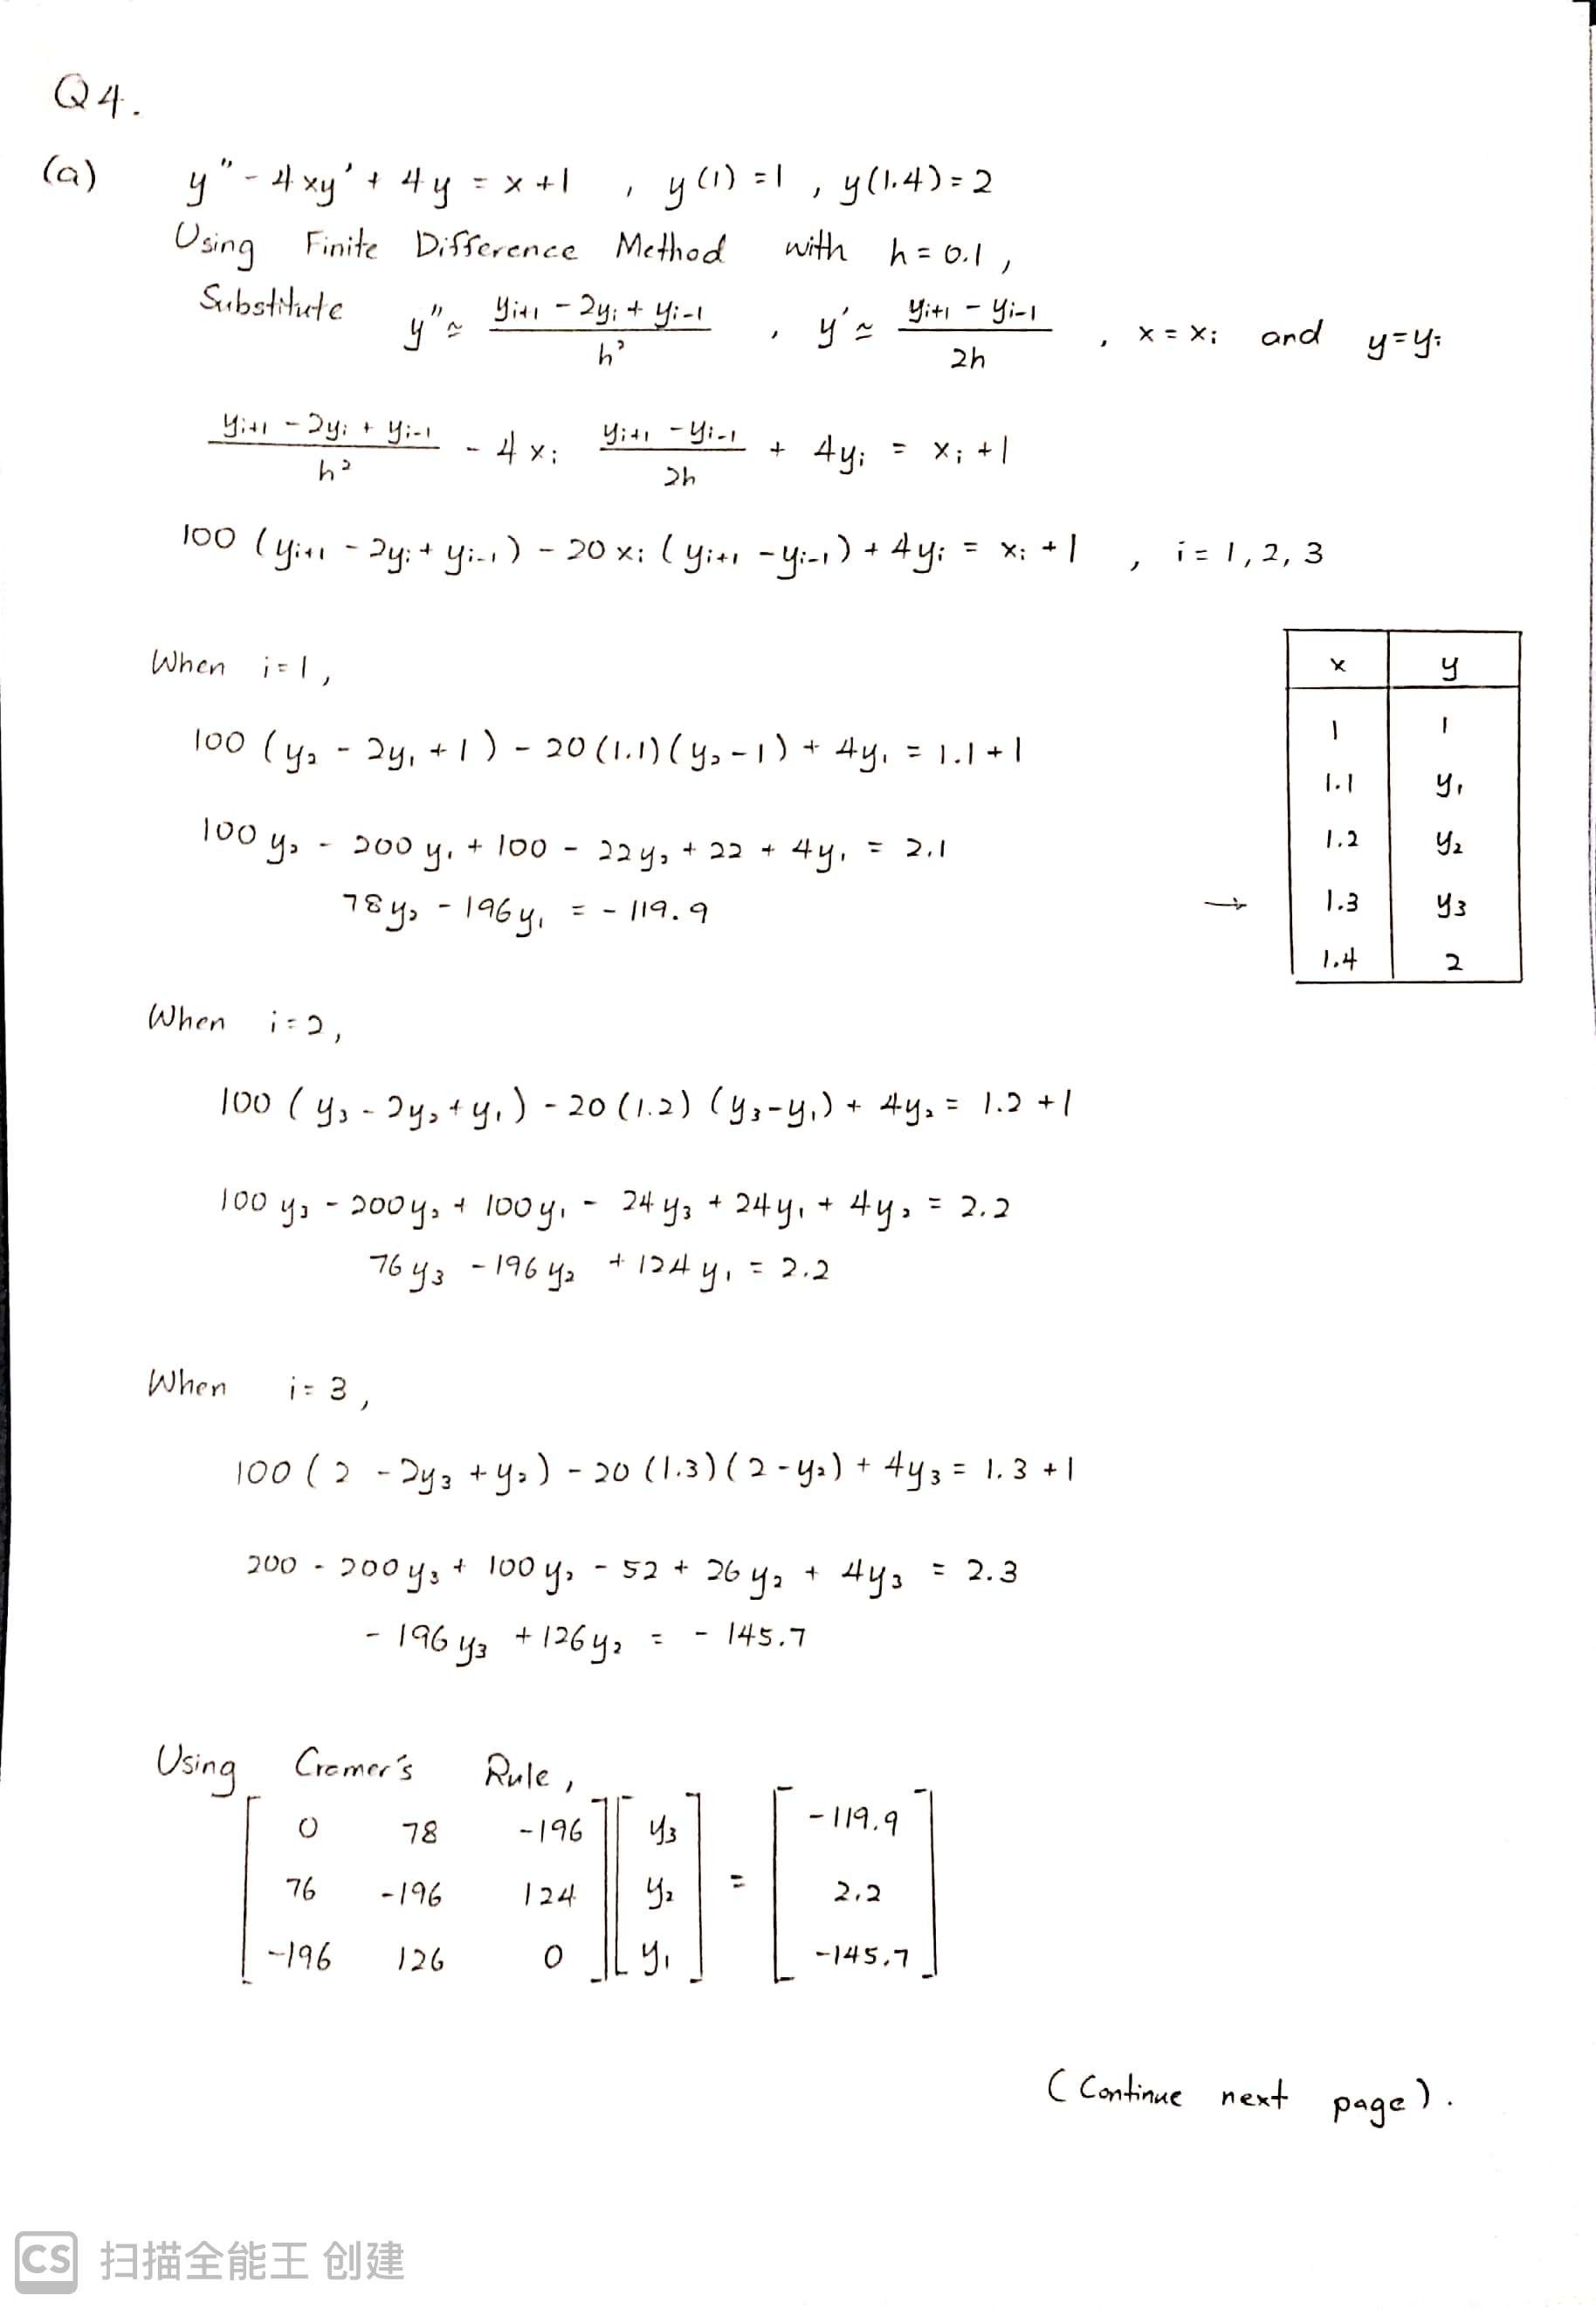 Q4.
(a) y" - 4xy' + 4y = x+1 , y(1) = 1 , y(1.4) = 2
Using Finite Difference Method with h = 0.1 ,
Substitute y" ≃ (yᵢ₊₁ - 2yᵢ + yᵢ₋₁)/h² , y' ≃ (yᵢ₊₁ - yᵢ₋₁)/2h , x = xᵢ and y = yᵢ
(yᵢ₊₁ - 2yᵢ + yᵢ₋₁)/h² - 4xᵢ (yᵢ₊₁ - yᵢ₋₁)/2h + 4yᵢ = xᵢ + 1
100 (yᵢ₊₁ - 2yᵢ + yᵢ₋₁) - 20xᵢ (yᵢ₊₁ - yᵢ₋₁) + 4yᵢ = xᵢ + 1 , i = 1, 2, 3
When i = 1 ,
100 (y₂ - 2y₁ + 1) - 20(1.1)(y₂ - 1) + 4y₁ = 1.1 + 1
100y₂ - 200y₁ + 100 - 22y₂ + 22 + 4y₁ = 2.1
78y₂ - 196y₁ = -119.9
x y
1 1
1.1 y₁
1.2 y₂
→ 1.3 y₃
1.4 2
When i = 2 ,
100 (y₃ - 2y₂ + y₁) - 20(1.2)(y₃ - y₁) + 4y₂ = 1.2 + 1
100y₃ - 200y₂ + 100y₁ - 24y₃ + 24y₁ + 4y₂ = 2.2
76y₃ - 196y₂ + 124y₁ = 2.2
When i = 3 ,
100 (2 - 2y₃ + y₂) - 20(1.3)(2 - y₂) + 4y₃ = 1.3 + 1
200 - 200y₃ + 100y₂ - 52 + 26y₂ + 4y₃ = 2.3
-196y₃ + 126y₂ = -145.7
Using Cramer's Rule ,
[ 0 78 -196 ] [ y₃ ] [ -119.9 ]
[ 76 -196 124 ] [ y₂ ] = [ 2.2 ]
[ -196 126 0 ] [ y₁ ] [ -145.7 ]
(Continue next page).
CS 扫描全能王 创建